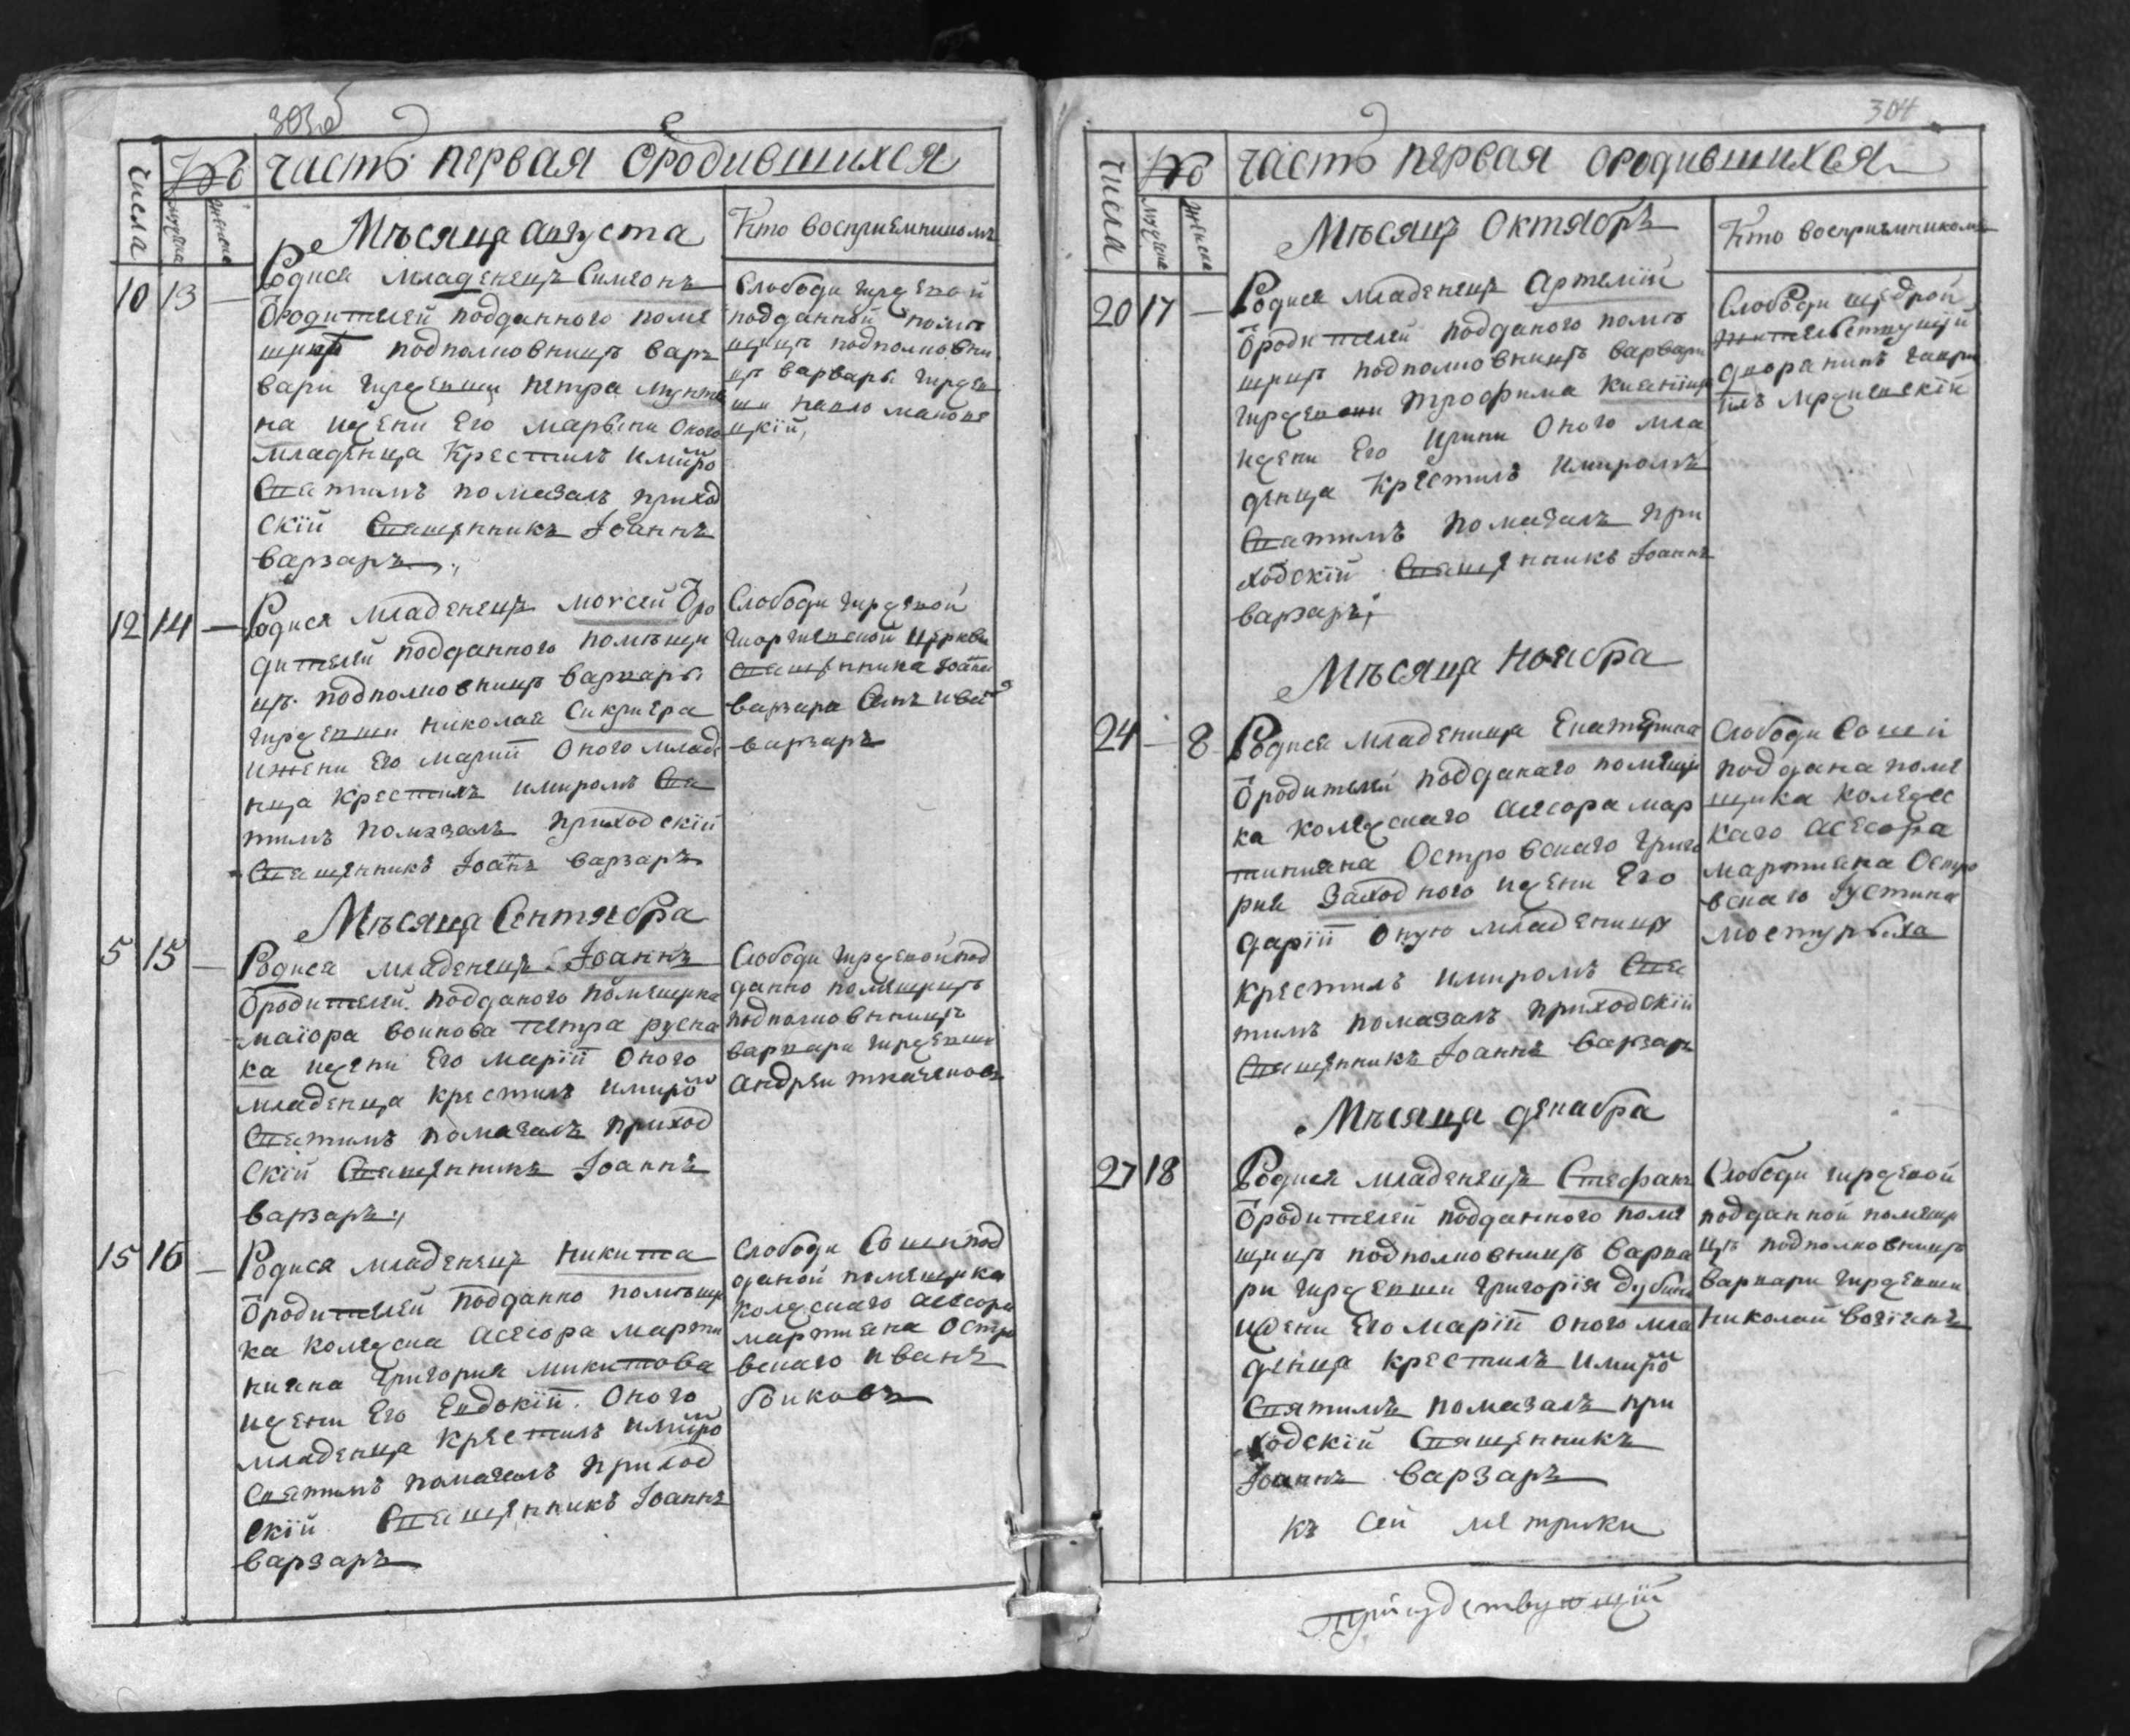 303об
Числа
№
мужеска
женска
часть первая ородившихся
Мѣсяца августа
Кто восприемникомъ
10 13 —
Родися младенецъ Симеонъ
ѿродителей подданного поме
щицѣ подполковницѣ вар
вари гирженши петра
на ижени Его марѣни Оного
младенца Крестилъ имиро
Святимъ помазалъ приход
скій Священникъ Іоаннъ
варзаръ
Слободи гиржевой
подданной помѣ
щицѣ подполковни
цѣ варвары гиржев
ши павло
цкій,
12 14 —
Родися младенецъ моѵсей ѿро
дителей подданного помѣщи
цѣ подполковницѣ варвары
гирженши николая Сикриера
ижени Его маріи Оного младе
нца крестилъ имиромъ Свя
тимъ помазалъ приходскій
Священникъ Іоаннъ варзаръ
Слободи гиржевой
георгиевской церкви
священника Іоанна
варзара Синъ Иванъ
варзаръ
Мѣсяца Сентября
5 15 —
Родися младенецъ Іоаннъ
ѿродителей подданого помещика
маіора воинова петра руснa
ка ижени Его маріи Оного
младенца крестилъ имиро
Святимъ помазалъ приход
скій Священникъ Іоаннъ
варзаръ,
Слободи гиржевой под
данно помещицѣ
подполковницѣ
варвари гирженши
андрей ткаченковъ
15 16 —
Родися младенецъ Никита
ѿродителей подданно помѣщи
ка колежска асесора марти
нияна григория микитова
ижени Его Евдокіи Оного
младенца крестилъ имиро
Святимъ помазалъ приход
скій Священникъ Іоаннъ
варзаръ
Слободи Сошей под
даной помещика
колежскаго асесора
мартияна Остро
вскаго иванъ
боиковъ
304
Числа
№
мужеска
женска
часть первая ородившихся
Мѣсяцъ Октябрѣ
Кто восприемникомъ
20 17 —
Родися младенецъ Артемій
ѿродителей подданого помѣ
щицѣ подполковницѣ варвари
гирженши трофима
ижени Его ирини Оного мла
денца Крестилъ имиромъ
Святимъ помазалъ при
ходскій Священникъ Іоаннъ
варзаръ,
Слободи щедрой
жителствующій
дворянинъ гаври
илъ
Мѣсяца Ноября
24 — 8
Родися младеница Екатерина
ѿродителей подданаго помещи
ка колежскаго асесора мар
тинияна Островскаго григо
рия Заходного ижени Его
даріи Оную младеницу
крестилъ имиромъ Свя
тимъ помазалъ приходскій
Священникъ Іоаннъ варзаръ
Слободи Сошей
поддана поме
щика колежс
каго асесора
мартияна Остро
вскаго Іустина
Мѣсяца декабра
27 18
Родися младенецъ Стефанъ
ѿродителей подданного поме
щицѣ подполковницѣ варва
ри гирженши григорія дубина
ижени Его маріи оного мла
денца крестилъ имиро
Святимъ помазалъ при
ходскій Священникъ
Іоаннъ варзаръ
Слободи гиржевой
подданной помещи
цѣ подполковницѣ
варвари гирженши
николай возіянъ
къ сей метрики